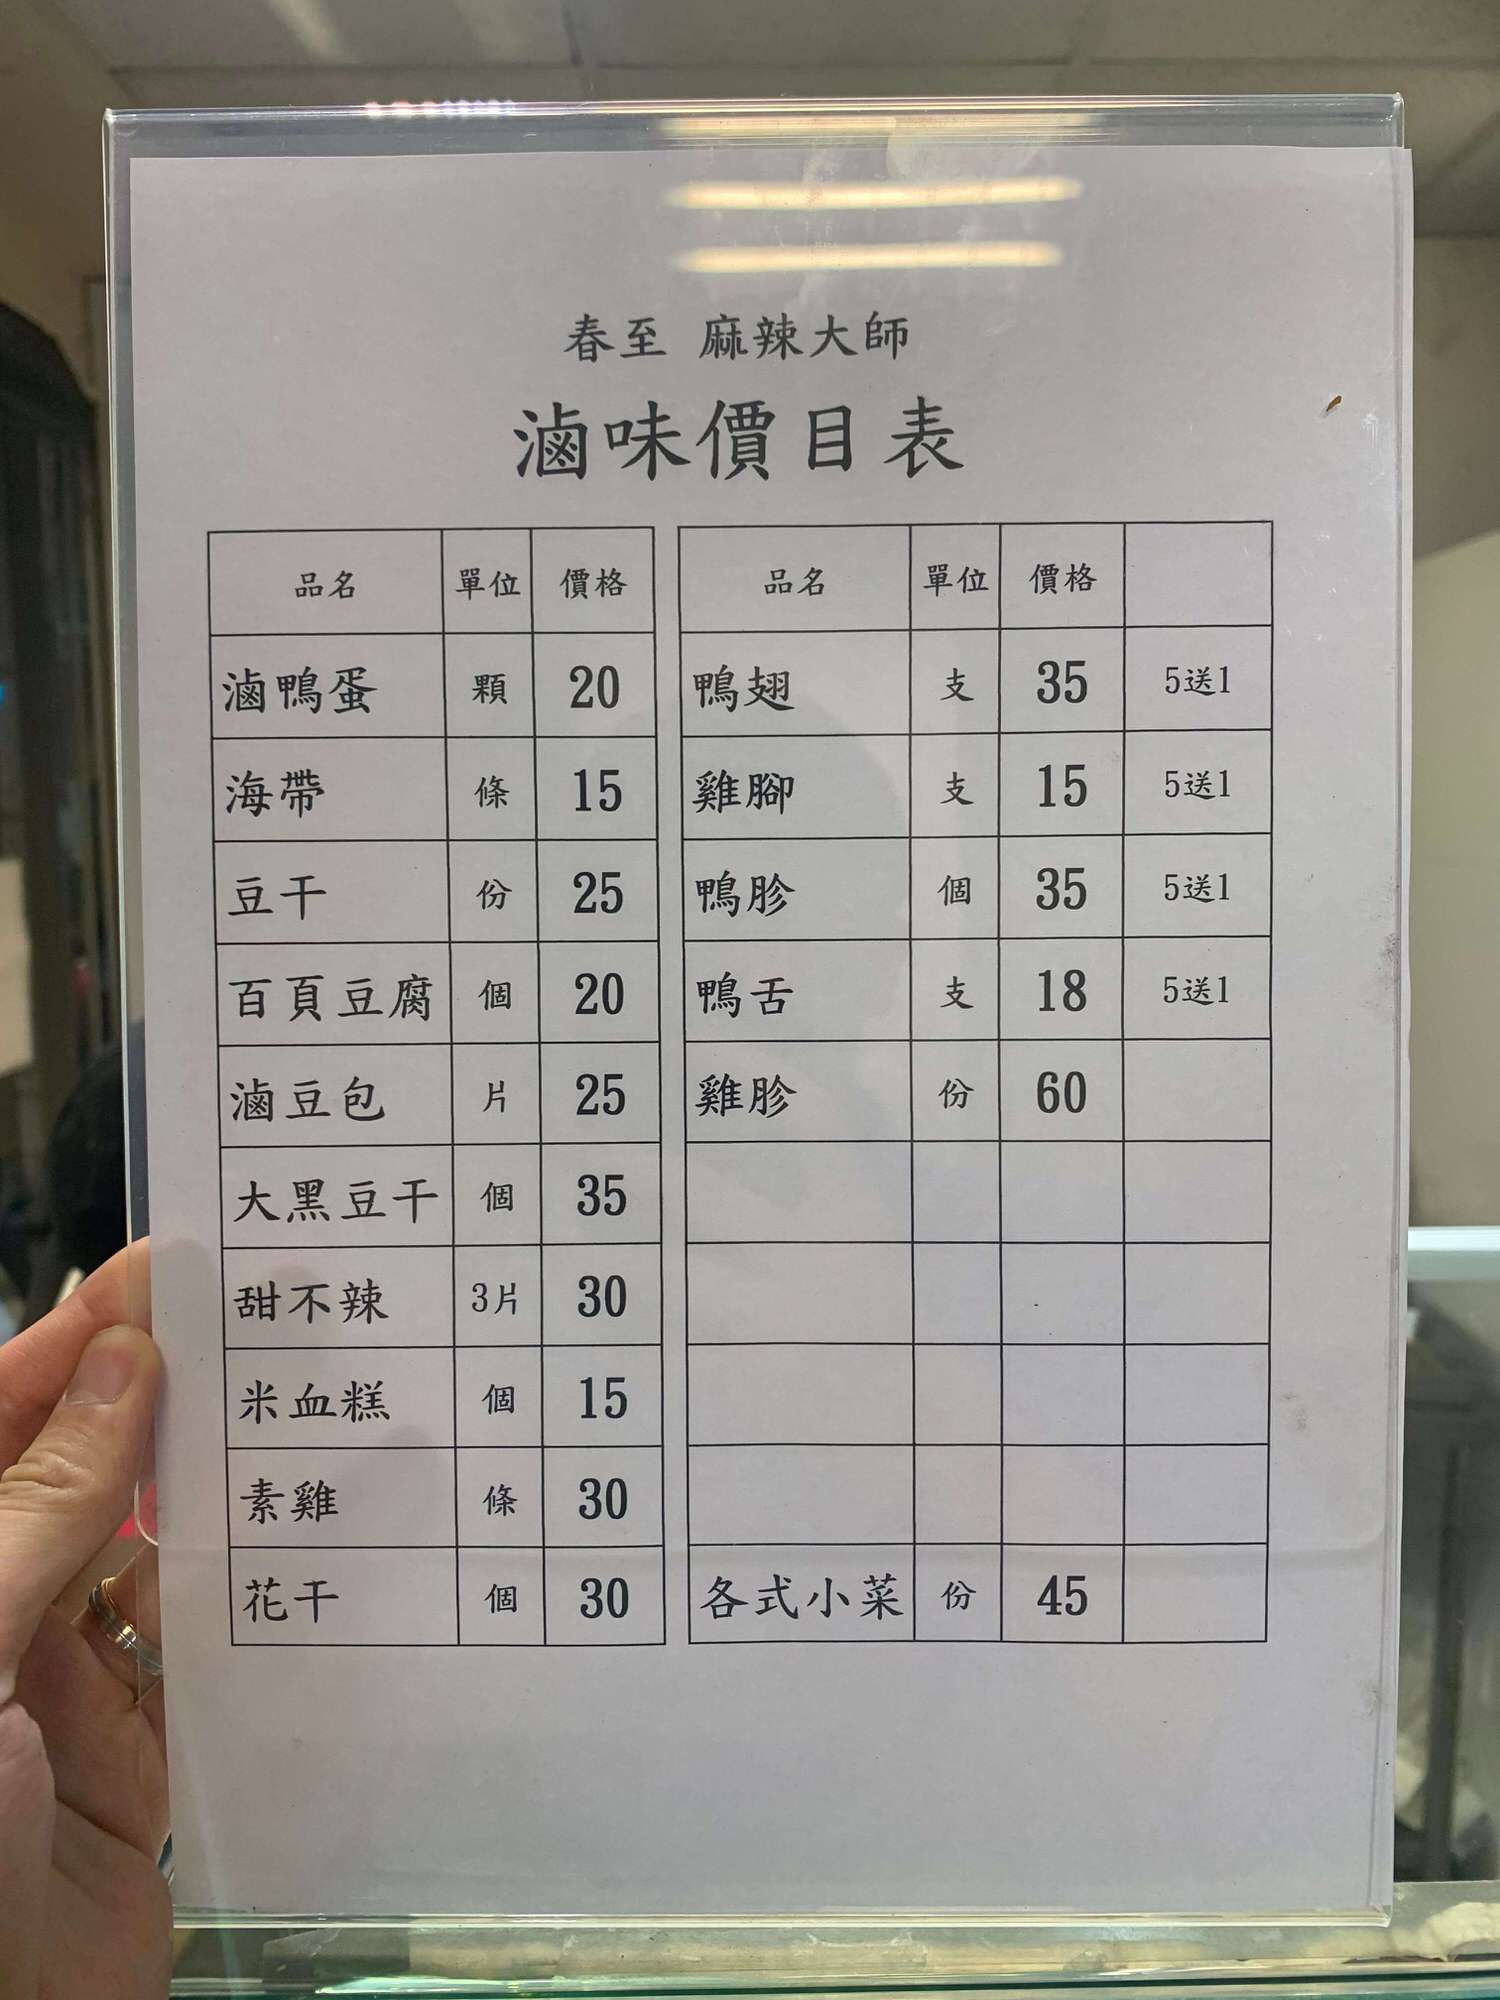 春至 麻辣大師
滷味價目表
品名 單位 價格
滷鴨蛋 顆 20
海帶 條 15
豆干 份 25
百頁豆腐 個 20
滷豆包 片 25
大黑豆干 個 35
甜不辣 3片 30
米血糕 個 15
素雞 條 30
花干 個 30
品名 單位 價格
鴨翅 支 35 5送1
雞腳 支 15 5送1
鴨胗 個 35 5送1
鴨舌 支 18 5送1
雞胗 份 60
各式小菜 份 45